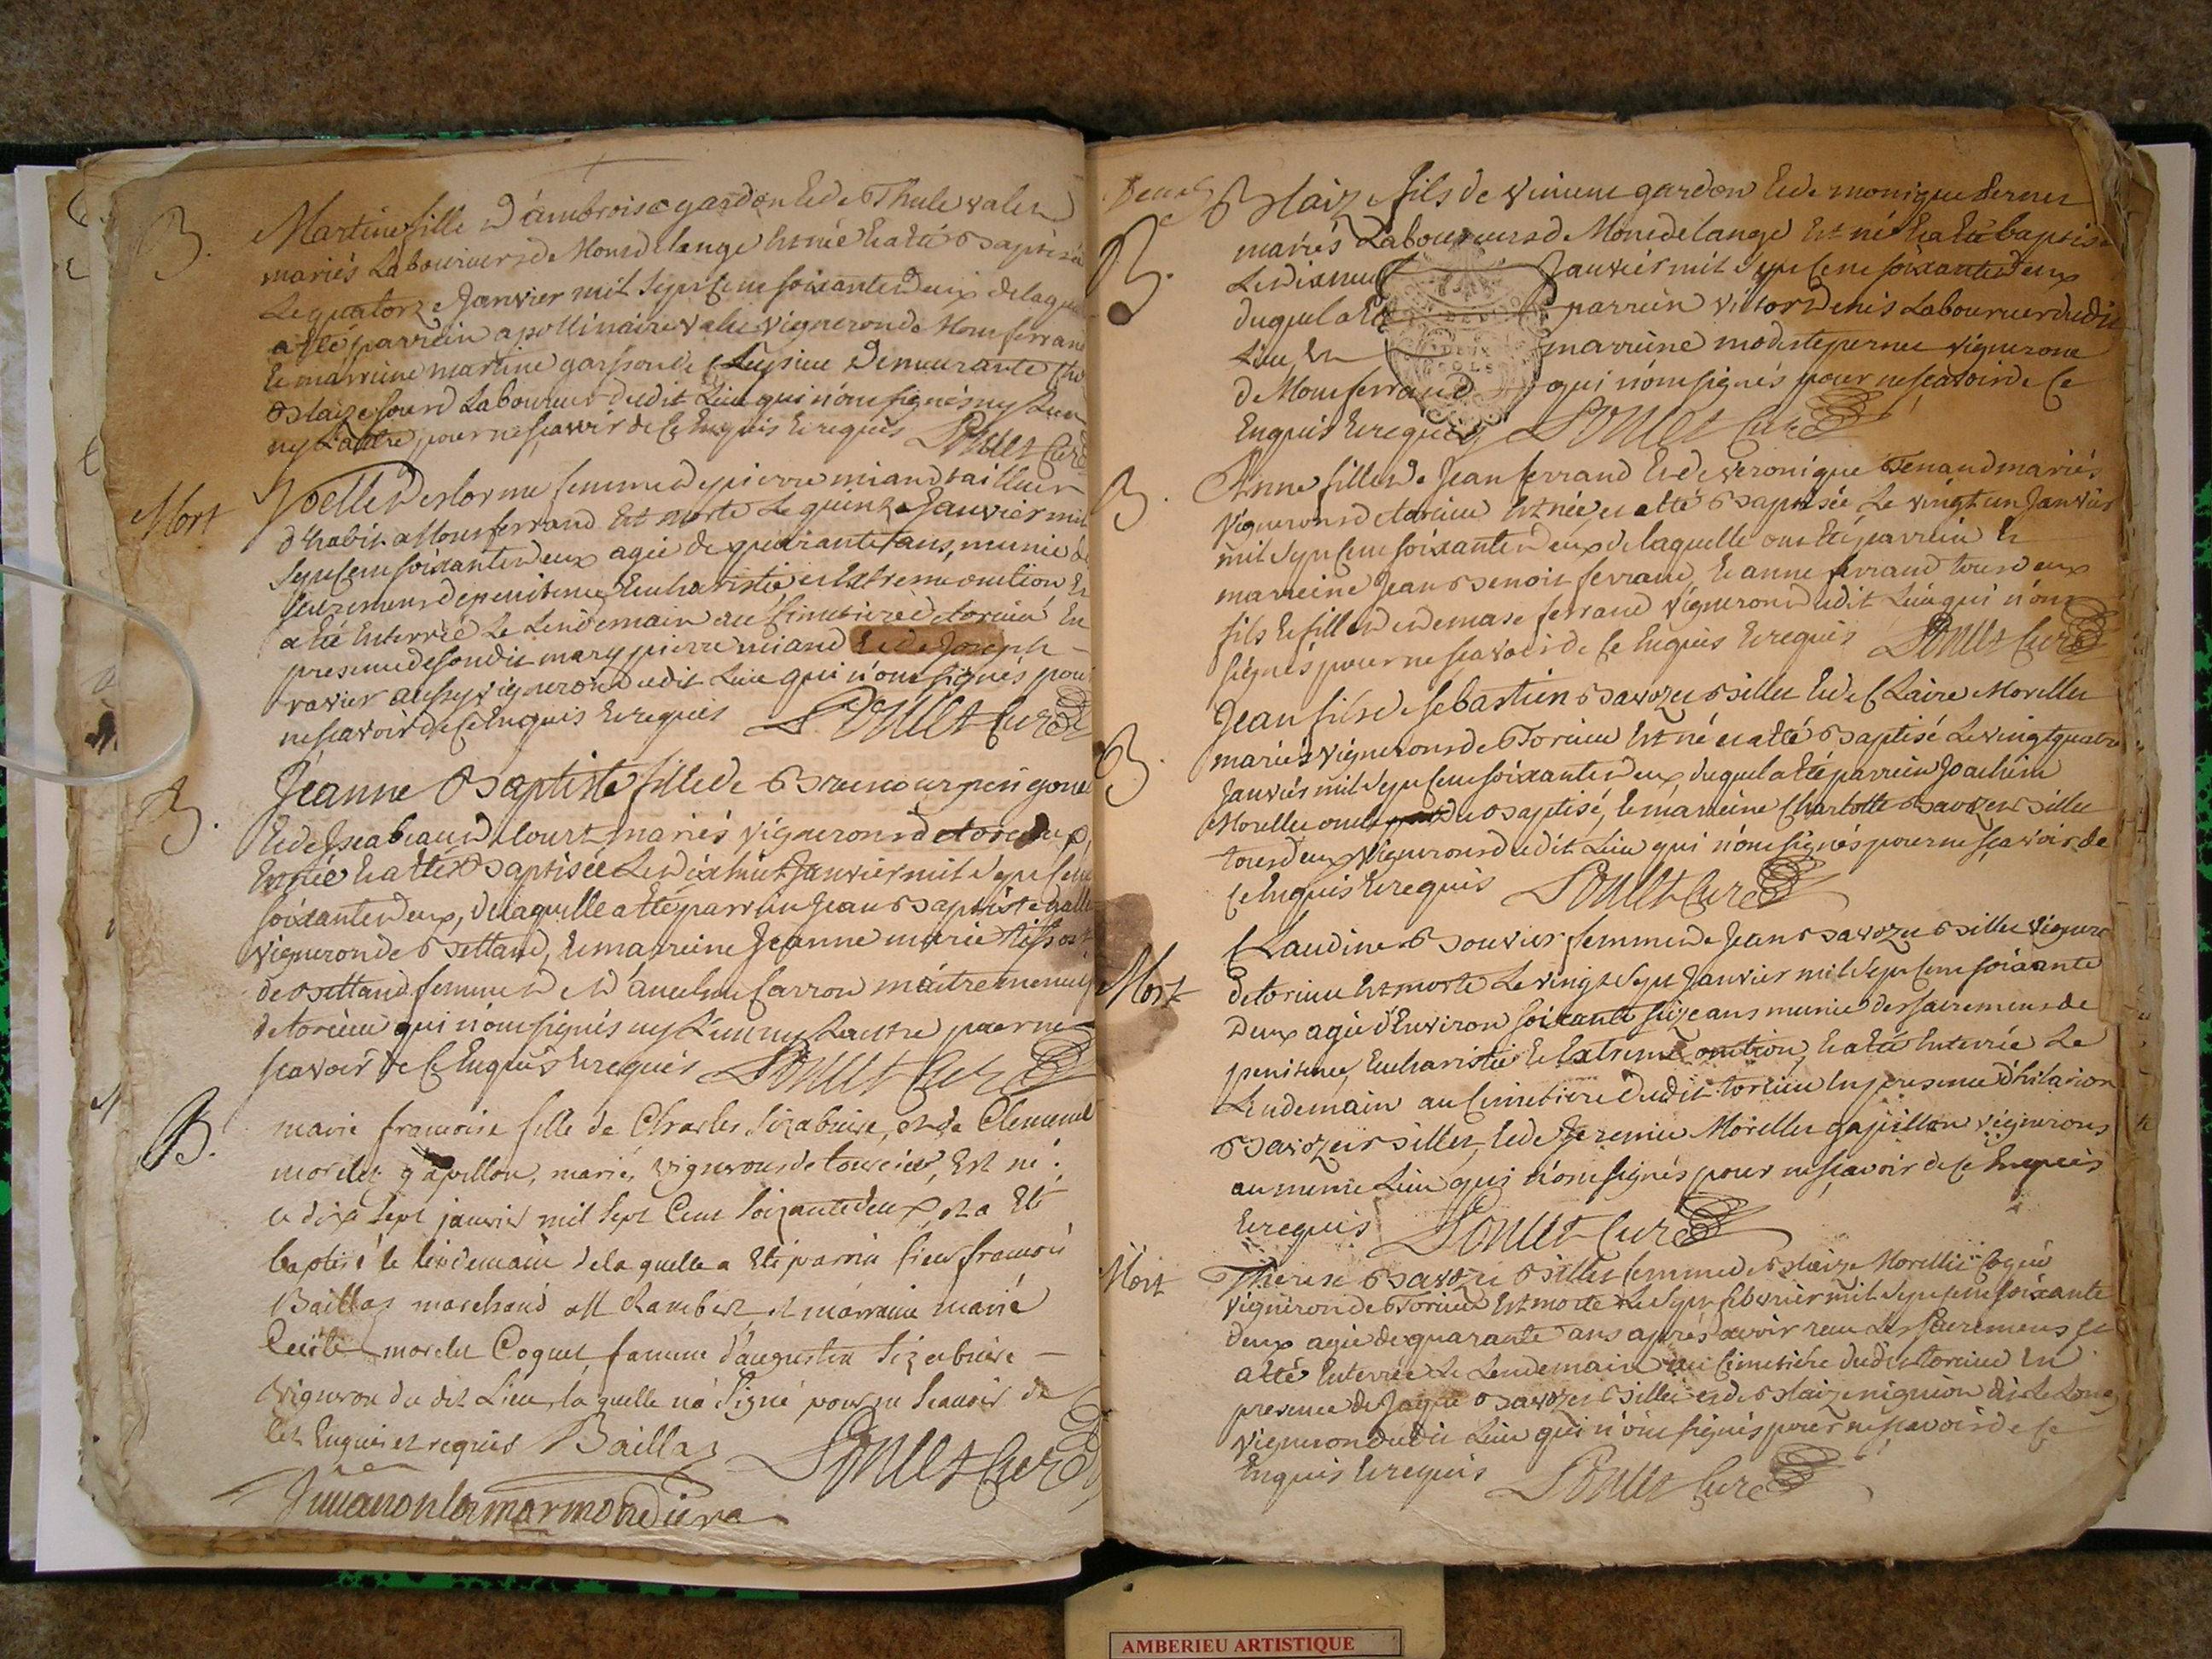 B. Martine fille d'ambroise gardon et de Thule valet
mariés Laboureurs de Mondelange est née et a été Baptisée
Le quatorze Janvier mil sept cent soixante deux de laquelle
a été parrein apollinaire valet vigneron de Montferrand
et marreine martine garsson de demeurante
Blaize Laboureur dudit Lieu qui n'ont signés ny L'un
ny L'autre pour ne sçavoir de ce Enquis et requis Ponclet Curé
Mort Joelle Delorme femme de pierre miand tailleur
d'habit a Montferrand Est morte Le quinze Janvier mil
sept cent soixante deux agée de quarante ans, munie de
sacremens de penitence, Eucharistie et Extreme onction, Et
a été Enterrée Le Lendemain au Cimetiere de torcieu En
presence de son dit mary pierre miand Et de Joseph
ravier aussy vigneron dudit Lieu qui n'ont signés pour
ne sçavoir de ce Enquis Et requis Ponclet Curé
B. Jeanne Baptiste fille de
Et de Isabeau Court mariés vignerons de torcieux,
Est née Et a été Baptisée Le dixhuit Janvier mil sept cent
soixante deux, de laquelle a été parrein Jean Baptiste
vigneron de Bettand, Et marreine Jeanne marie tissot
de Bettand femme de d'ancelme Carron maitre
de torcieu qui n'ont signés ny L'un ny L'autre pour ne
scavoir de ce Enquis Et requis Ponclet Curé
B. marie francoise fille de Charles Sizabuire, et de Clemence
morelet gapillon, marié, vignerons de torcieu, Est né
le dix sept janvier mil sept Cent Soixante deux, et a Eté
baptisé le lendemain de la quelle a Eté parrin sieur francois
Baillaz marchand a St Rambert et marraine marie
Cecile morelet Coquet famme d'augustin Sizabuire
vigneron du dit Lieu, la quelle na Signé pour ne Scauoir de
Cet Enquis et requis Baillaz Ponclet Curé
Blaize fils de vincent gardon Et de monique Pernet
mariés Laboureurs de Mondelange Est né Et a été baptisé
B. Le dixneuf Janvier mil sept cent soixante deux
duquel a été parrein victor Denis Laboureur dudit
Lieu, Et marreine modeste pernet vignerone
de Montferrand qui n'ont signés pour ne sçavoir de ce
Enquis Et requis Ponclet Curé
B. Anne fille de Jean ferrand Et de veronique Tenand mariés
vignerons de torcieu Est née et a été Baptisée Le vingt un Janvier
mil sept cent soixante deux de laquelle ont été parrein Et
marreine Jean Benoit ferrand, Et anne ferrand tous deux
fils Et fille de demase ferrand vigneron dudit Lieu qui n'ont
signés pour ne sçavoir de ce Enquis Et requis Ponclet Curé
Jean fils de sebastien Savozet Billet Et de Claire Morellet
B. mariés vignerons de Torcieu Est né et a été Baptisé Le vingt quatre
Janvier mil sept cent soixante deux duquel a été parrein Joachim
Morellet oncle du Baptisé, Et marreine Charlotte Savozet Billet
tous deux vignerons dudit Lieu qui n'ont signés pour ne sçavoir de
ce Enquis Et requis Ponclet Curé
Claudine Bouvier femme de Jean Savozet Billet vigneron
Mort de torcieu Est morte Le vingt sept Janvier mil sept cent soixante
Deux agée d'Environ soixante seize ans munie des sacremens de
penitence, Eucharistie et Extreme onction, Et a été Enterrée Le
Lendemain au Cimetiere dudit torcieu En presence d'hilarion
Savozet Billet, Et de Jeremie Morellet gapillon vignerons
au meme Lieu qui n'ont signés pour ne sçavoir de ce Enquis
Et requis Ponclet Curé
Mort Therese Savozet Billet femme de Blaize Morellet Coque
vigneron de Torcieu Est morte Le sept febvrier mil sept cent soixante
deux agée de quarante ans aprés avoir receu Les sacremens Et
a été Enterrée Le Lendemain au Cimetiere dudit torcieu En
presence de Jaque Savozet Billet et de Blaize
vigneron dudit Lieu qui n'ont signés pour ne sçavoir de ce
Enquis Et requis Ponclet Curé
AMBERIEU ARTISTIQUE